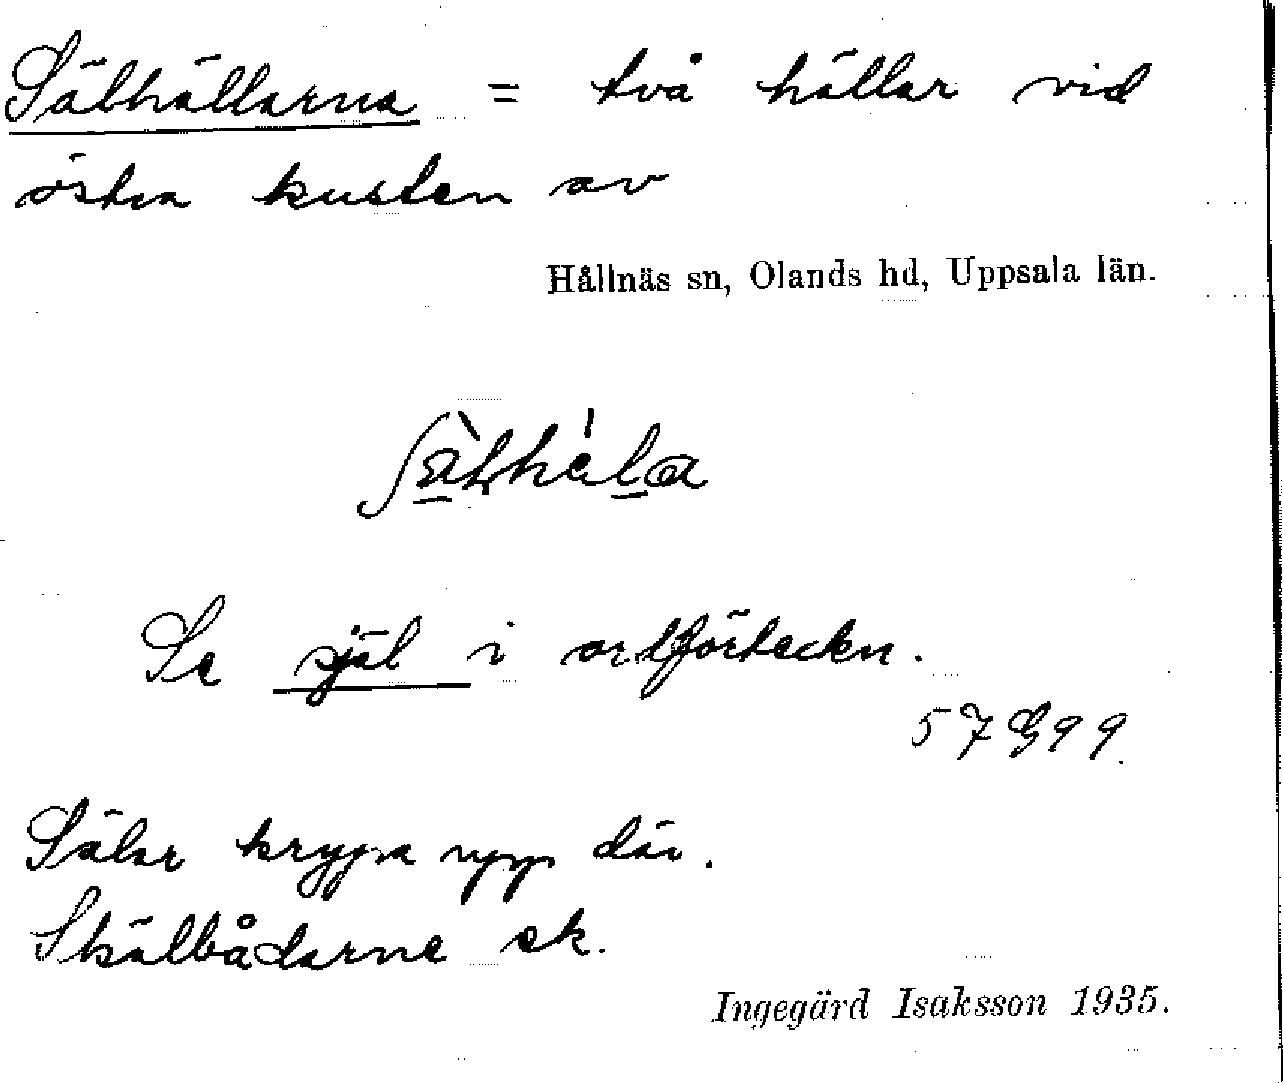 Sälhällarna = två hällar vid
östra kusten av
Hållnäs sn, Olands hd, Uppsala län.
Se själ i ortförteckn.
Sälar krypa upp där.
Skälbådarne ek.
Ingegärd Isaksson 1935.